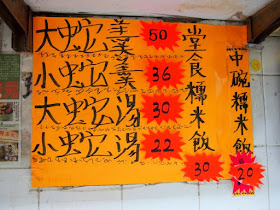 大蛇羹 50
小蛇羹 36
大蛇湯 30
小蛇湯 22
堂食糯米飯 30
中碗糯米飯 20